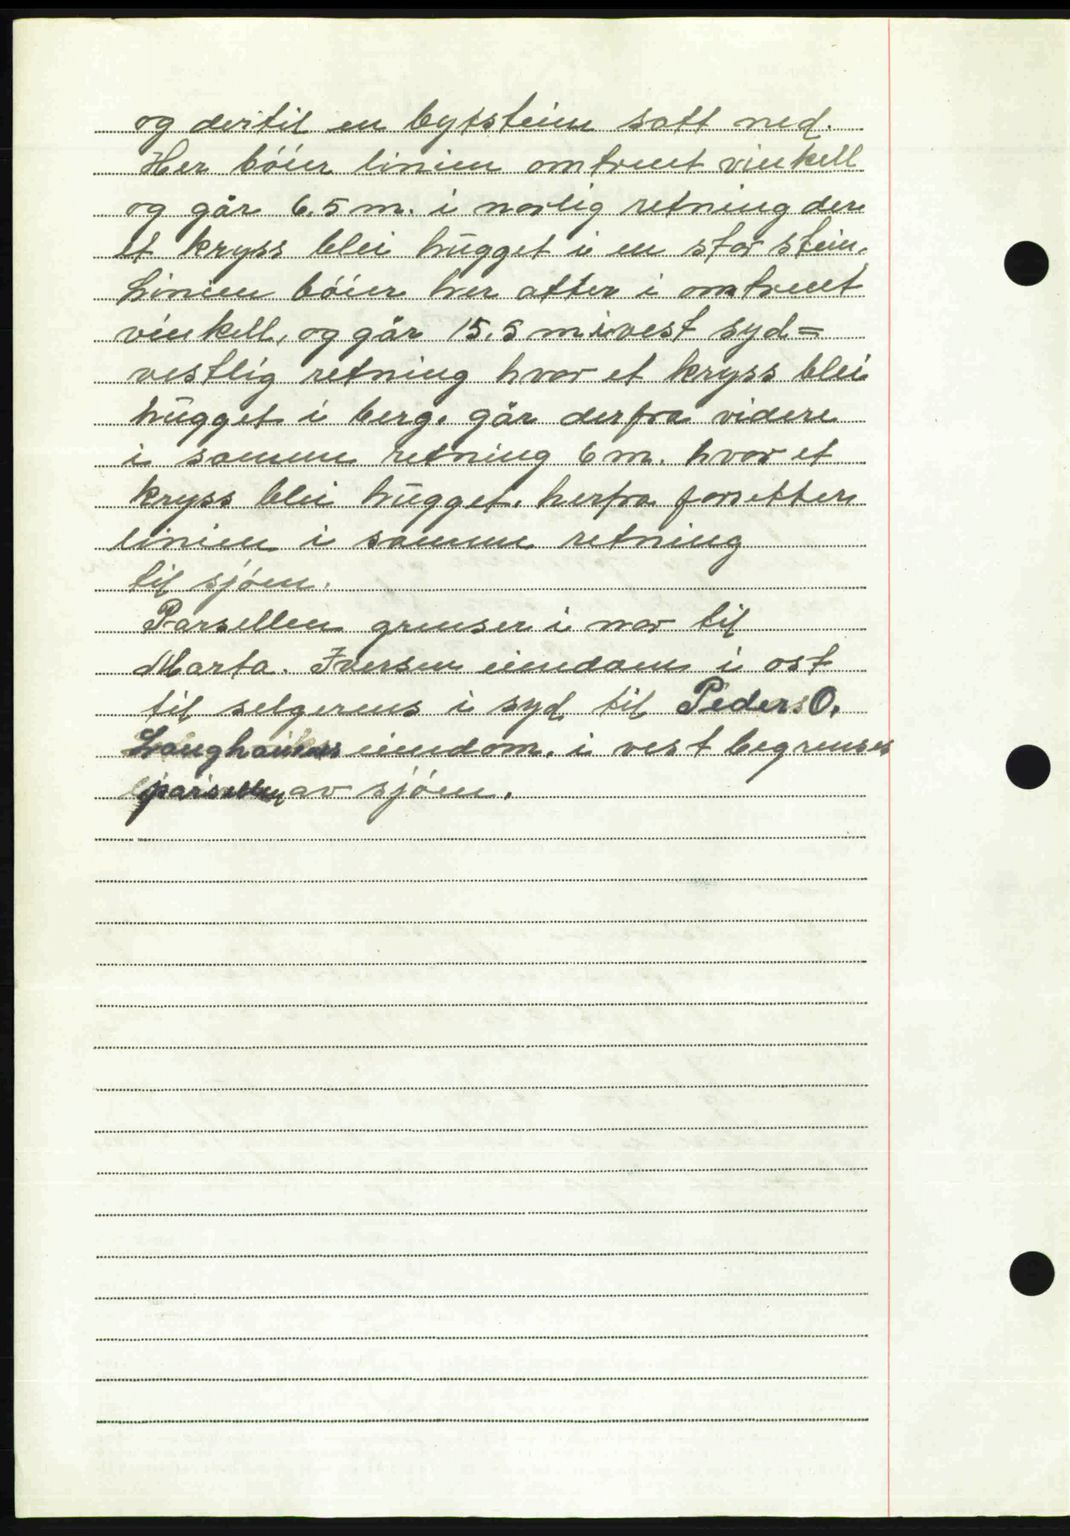 og dertil en bytstein satt ned.
Her böier linien omtrent vinkell
og går 6.5 m. i norlig retning der
et kryss blei hugget i en stor stein.
Linien böier her atter i omtrent
vinkell, og går 15.5 m i vest syd=
vestlig retning hvor et kryss blei
hugget i berg. går derfra videre
i samme retning 6 m. hvor et
kryss blei hugget. herfra forsetter
linien i samme retning
til sjöen.
Parsellen grenser i nor til
Marta. Iversen eiendom i ost
til selgerens i syd til Peder O.
eiendom. i vest begrenses
parsellen av sjöen.